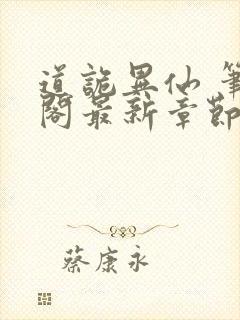 道詭異仙 筆
閣最新章節
蔡康永